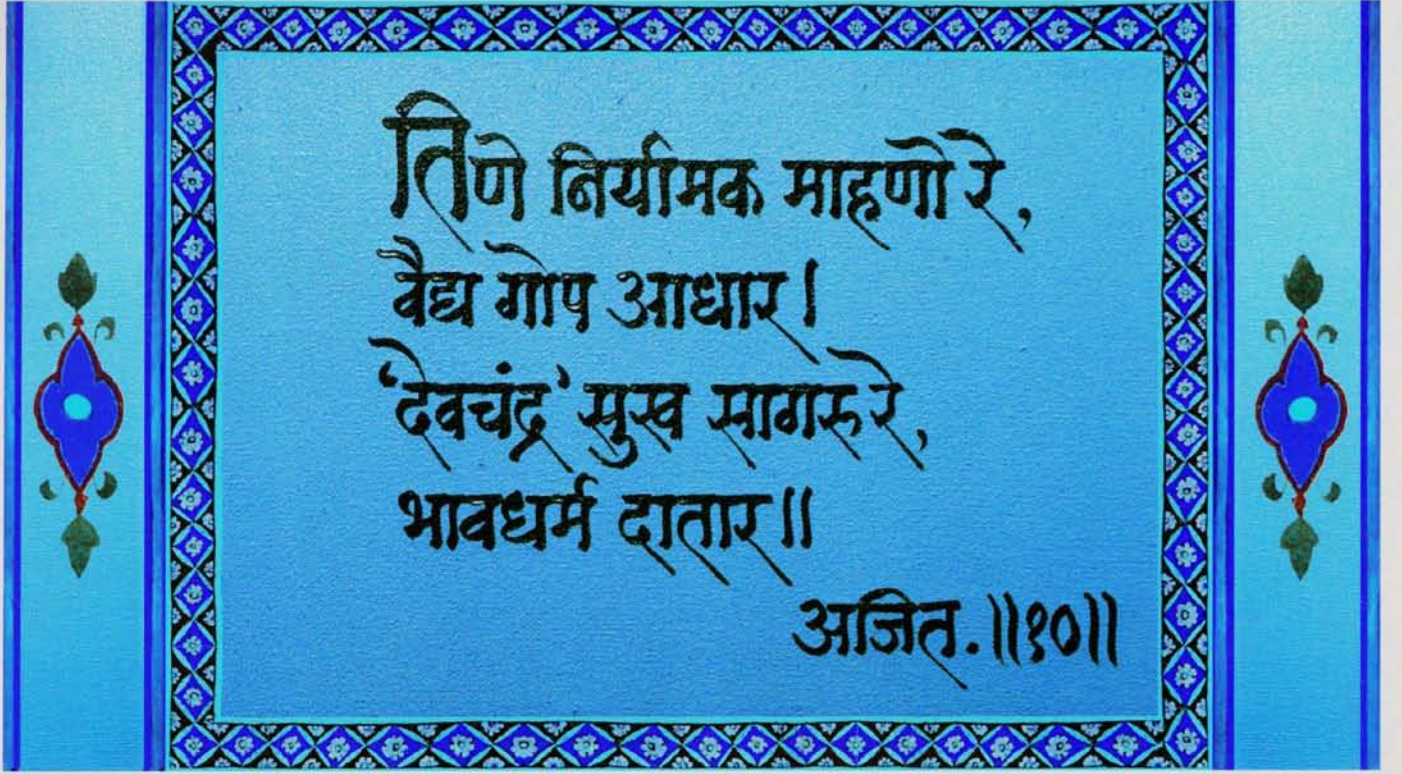 तिणे निर्यामक माहणो रे,
वैद्य गोप आधार।
‘देवचंद्र’ सुख सागरु रे,
भावधर्म दातार॥
अजित.॥१०॥